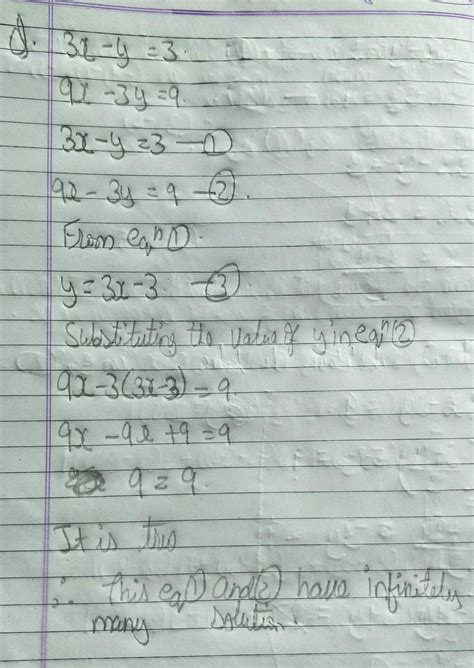 3x-y=3.
9x-3y=9.
3x-y=3 — ①
9x-3y=9 — ②.
From eqⁿ ①.
y=3x-3. — ③
Substituting the value of y in eqⁿ ②
9x-3(3x-3)=9.
9x-9x+9=9
9=9.
It is true
∴ this eq ① and ② have infinitely
many solution.